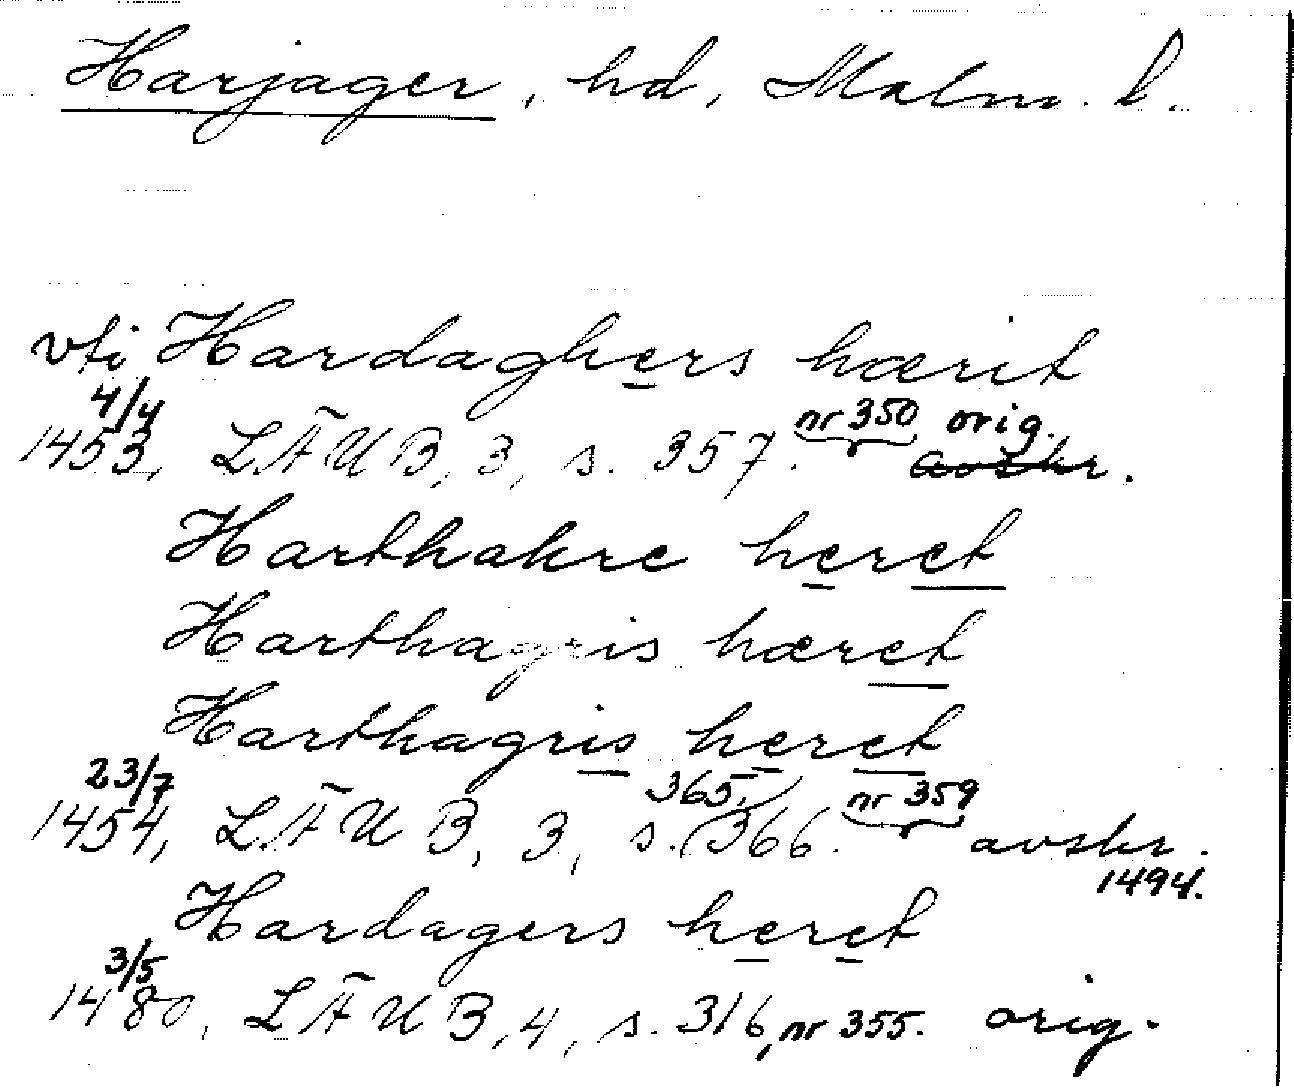 Harjager, hd, Malm. l.
vti Hardaghers hærit
4/4 nr 350 orig.
1453, LÄUB, 3, s. 357. avskr.
Harthakre heret
Harthagris hæret
Harthagris heret
23/7 365, nr 359
1454, LÄUB, 3, s. (366. avskr.
1494.
Hardagers heret
3/5
1480, LÄUB, 4, s. 316, nr 355. orig.